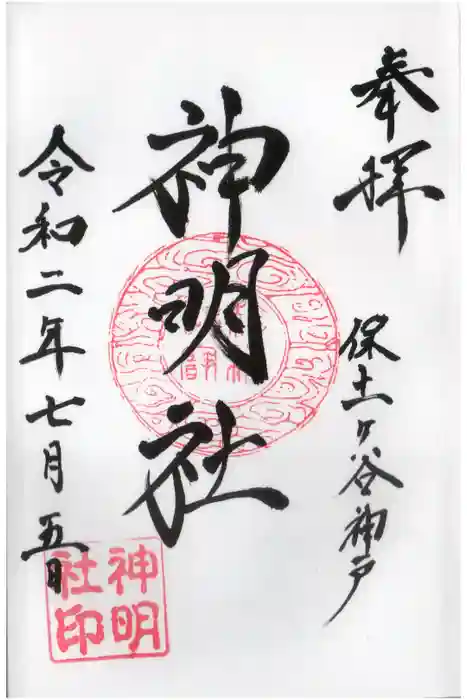 奉拝
保土ヶ谷神戸
神明社
令和二年七月五日
神明
社印